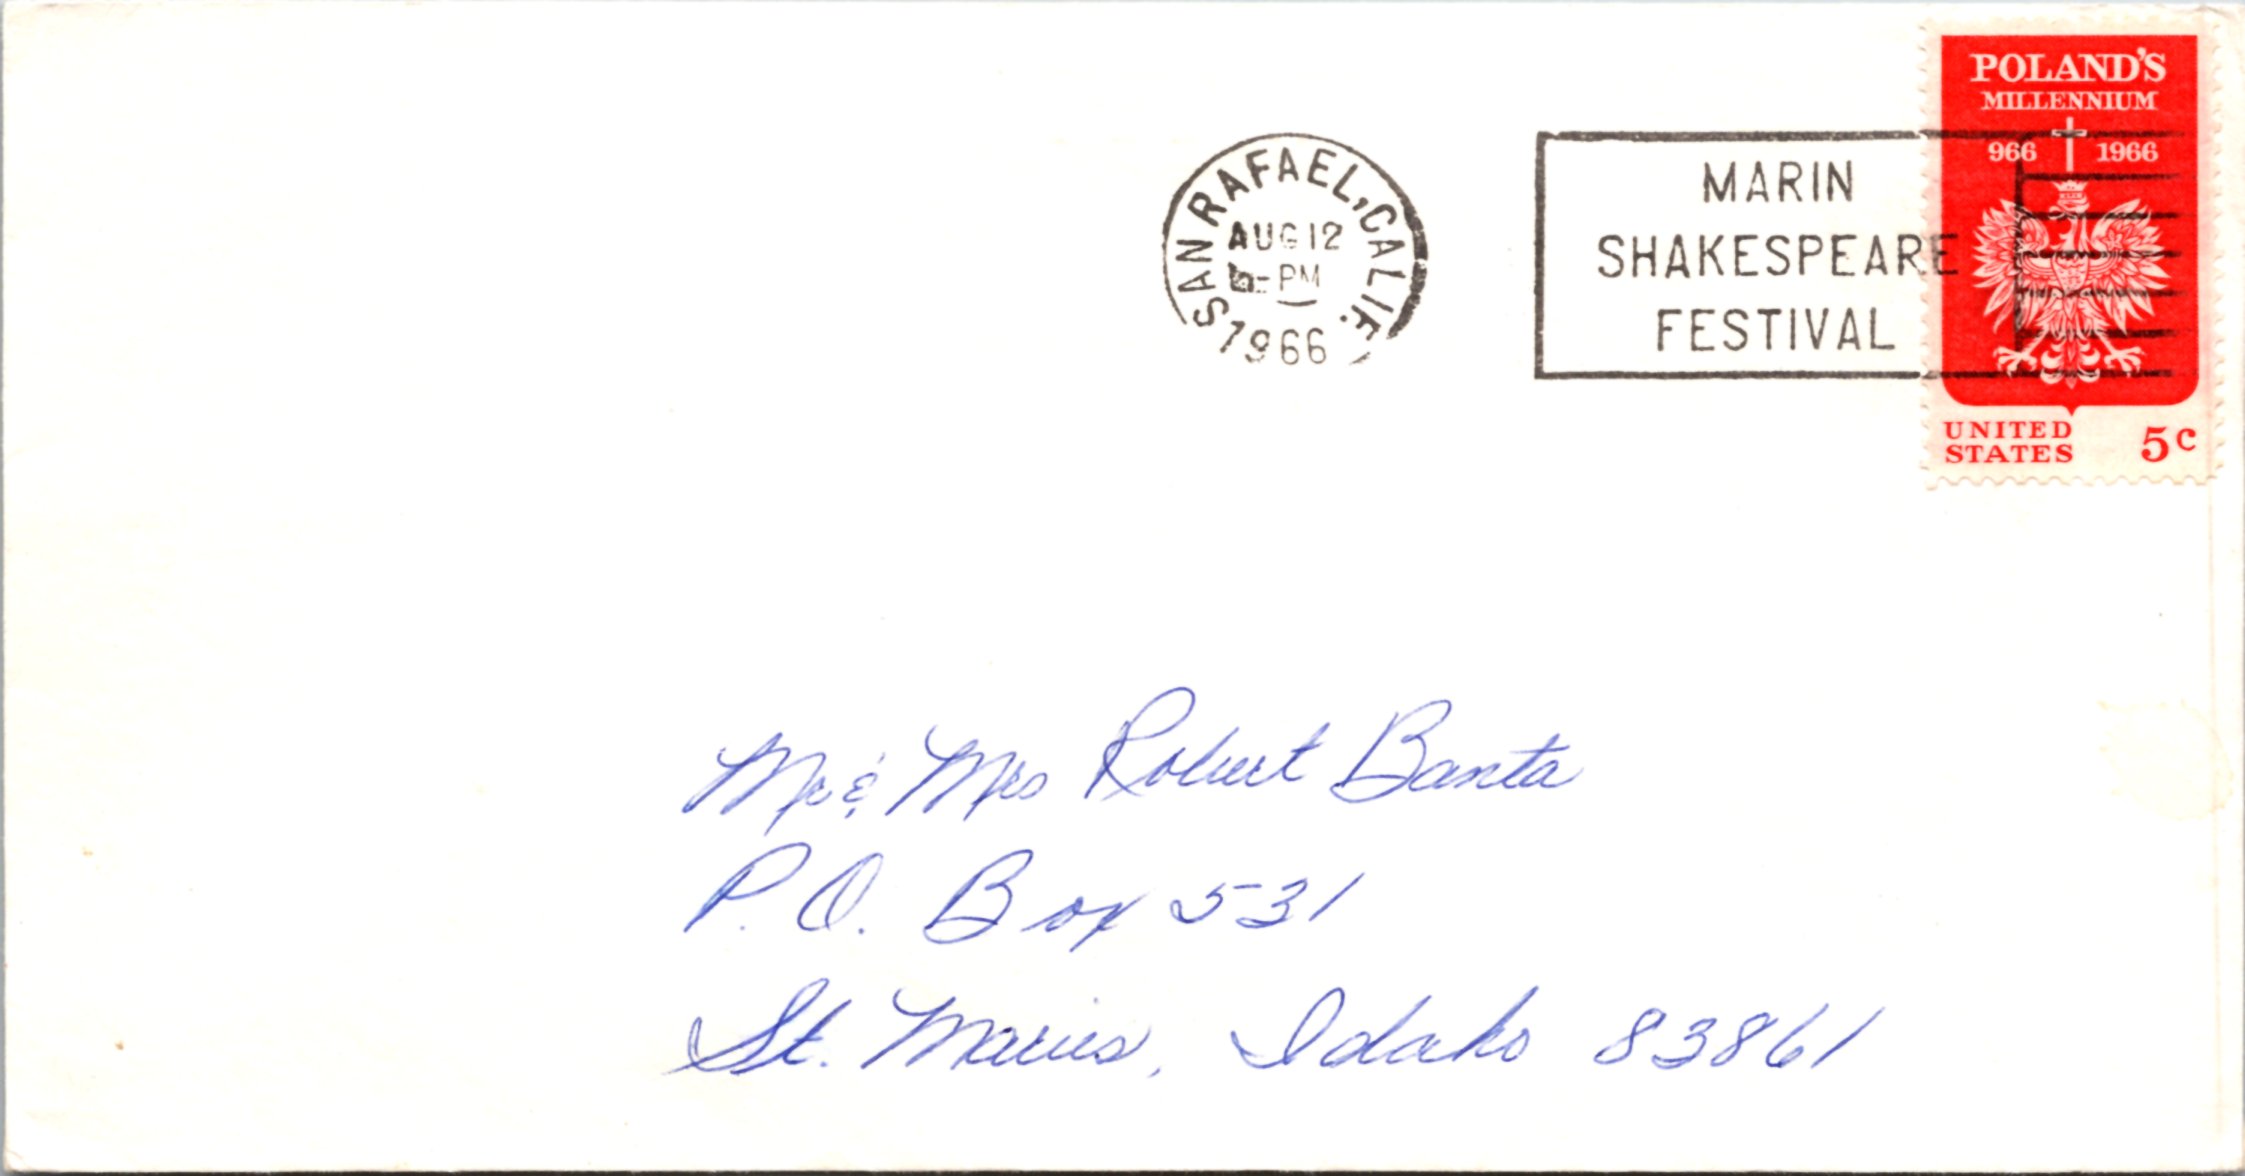 POLAND'S
MILLENNIUM
966 1966
UNITED
STATES 5c
SAN RAFAEL, CALIF.
AUG 12
PM
1966
MARIN
SHAKESPEARE
FESTIVAL
Mr & Mrs Robert Banta
P.O. Box 531
St. Maries, Idaho 83861